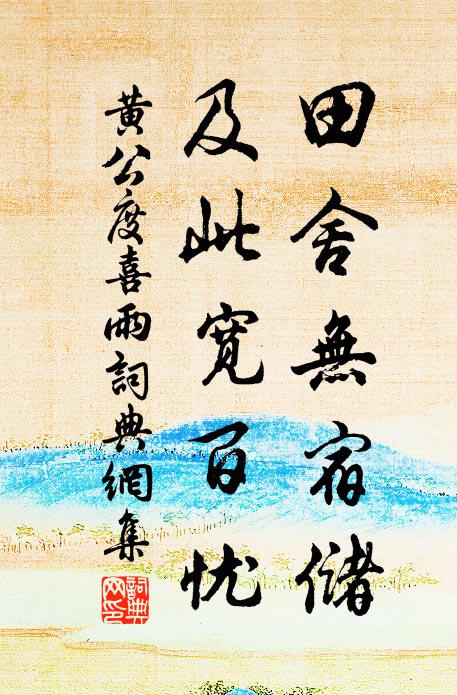 田舍無宿儲
及此寬百忧
黃公度喜雨詞典網集